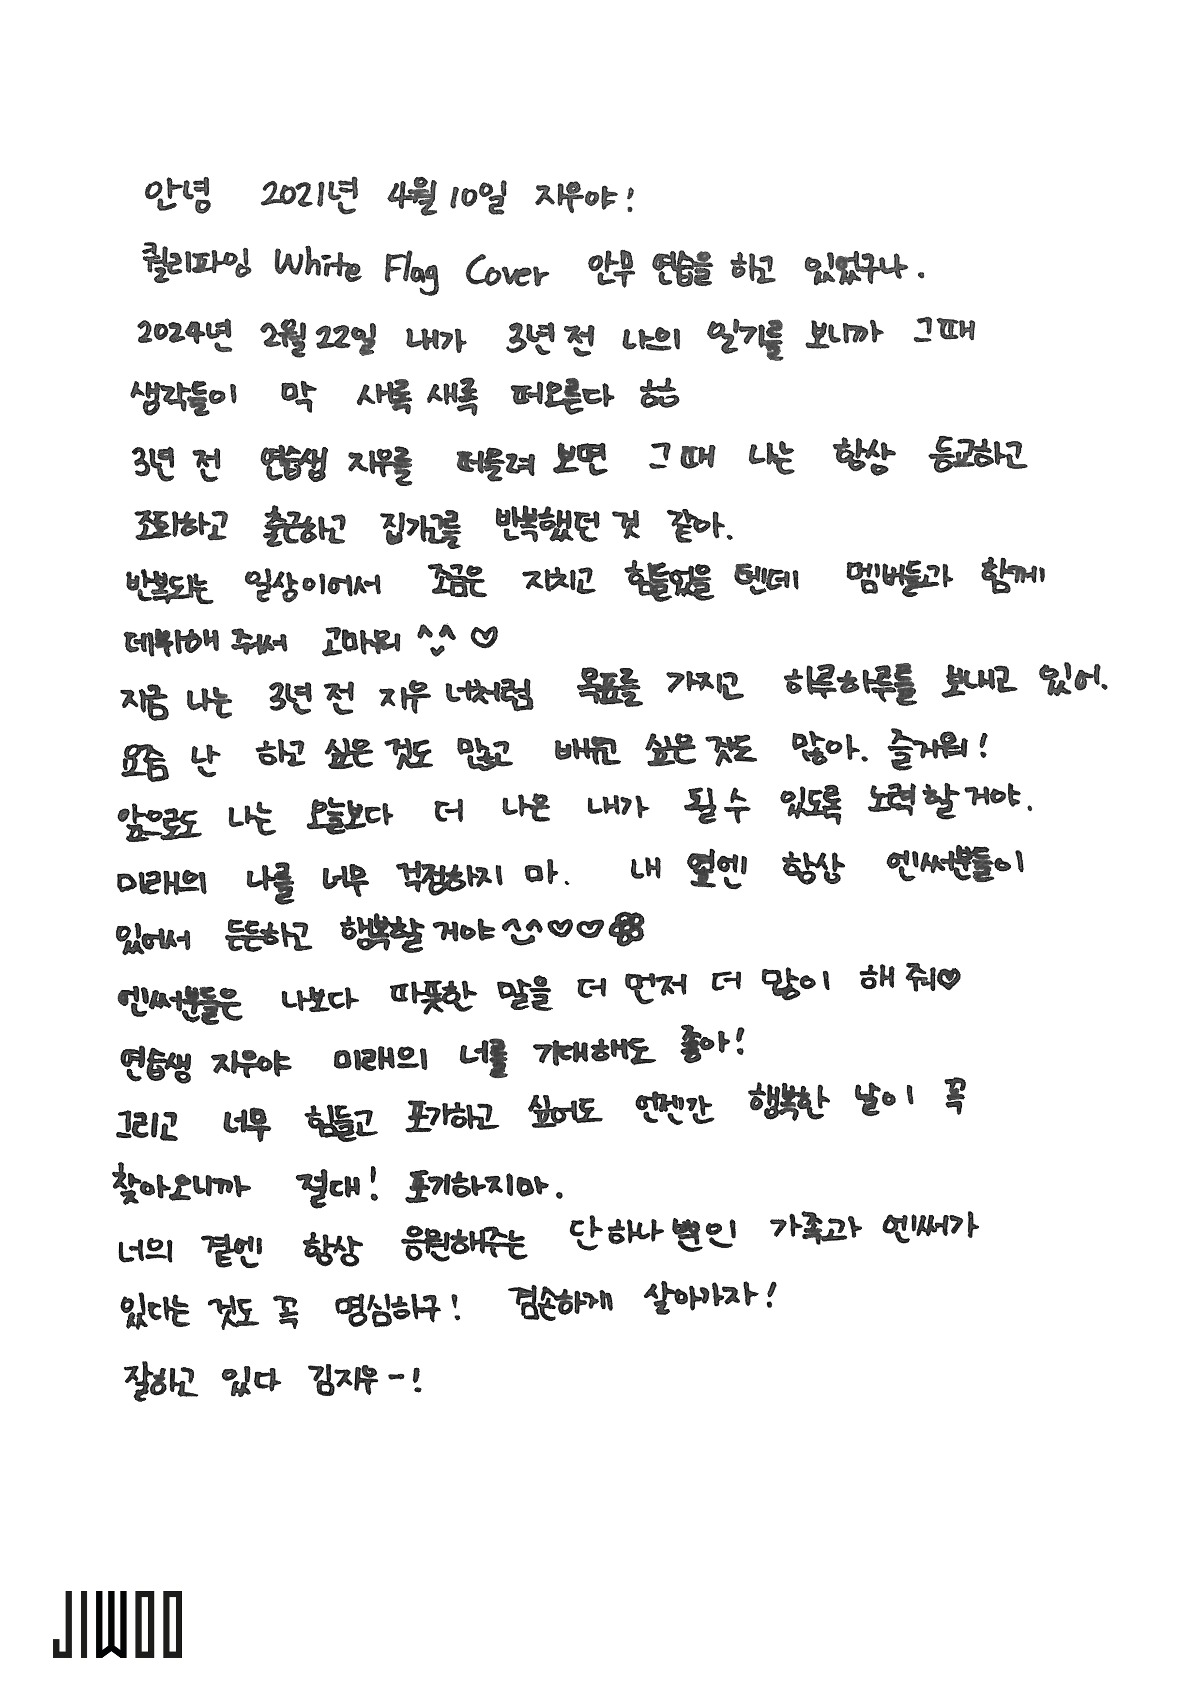 안녕 2021년 4월 10일 지우야!
퀄리파잉 White Flag Cover 안무 연습을 하고 있었구나.
2024년 2월 22일 내가 3년 전 나의 일기를 보니까 그때
생각들이 막 새록 새록 떠오른다 ㅎㅎ
3년 전 연습생 지우를 떠올려 보면 그 때 나는 항상 등교하고
조퇴하고 출근하고 집가고를 반복했던 것 같아.
반복되는 일상이어서 조금은 지치고 힘들었을 텐데 멤버들과 함께
데뷔해 줘서 고마워 ^^ ♡
지금 나는 3년 전 지우 너처럼 목표를 가지고 하루하루를 보내고 있어.
요즘 난 하고 싶은 것도 많고 배우고 싶은 것도 많아. 즐거워!
앞으로도 나는 오늘보다 더 나은 내가 될 수 있도록 노력할 거야.
미래의 나를 너무 걱정하지 마. 내 옆엔 항상 엔써분들이
있어서 든든하고 행복할 거야 ^^♡♡
엔써분들은 나보다 따뜻한 말을 더 먼저 더 많이 해 줘♡
연습생 지우야 미래의 너를 기대해도 좋아!
그리고 너무 힘들고 포기하고 싶어도 언젠간 행복한 날이 꼭
찾아오니까 절대! 포기하지마.
너의 곁엔 항상 응원해주는 단 하나 뿐인 가족과 엔써가
있다는 것도 꼭 명심하구! 겸손하게 살아가자!
잘하고 있다 김지우-!
JIWOO